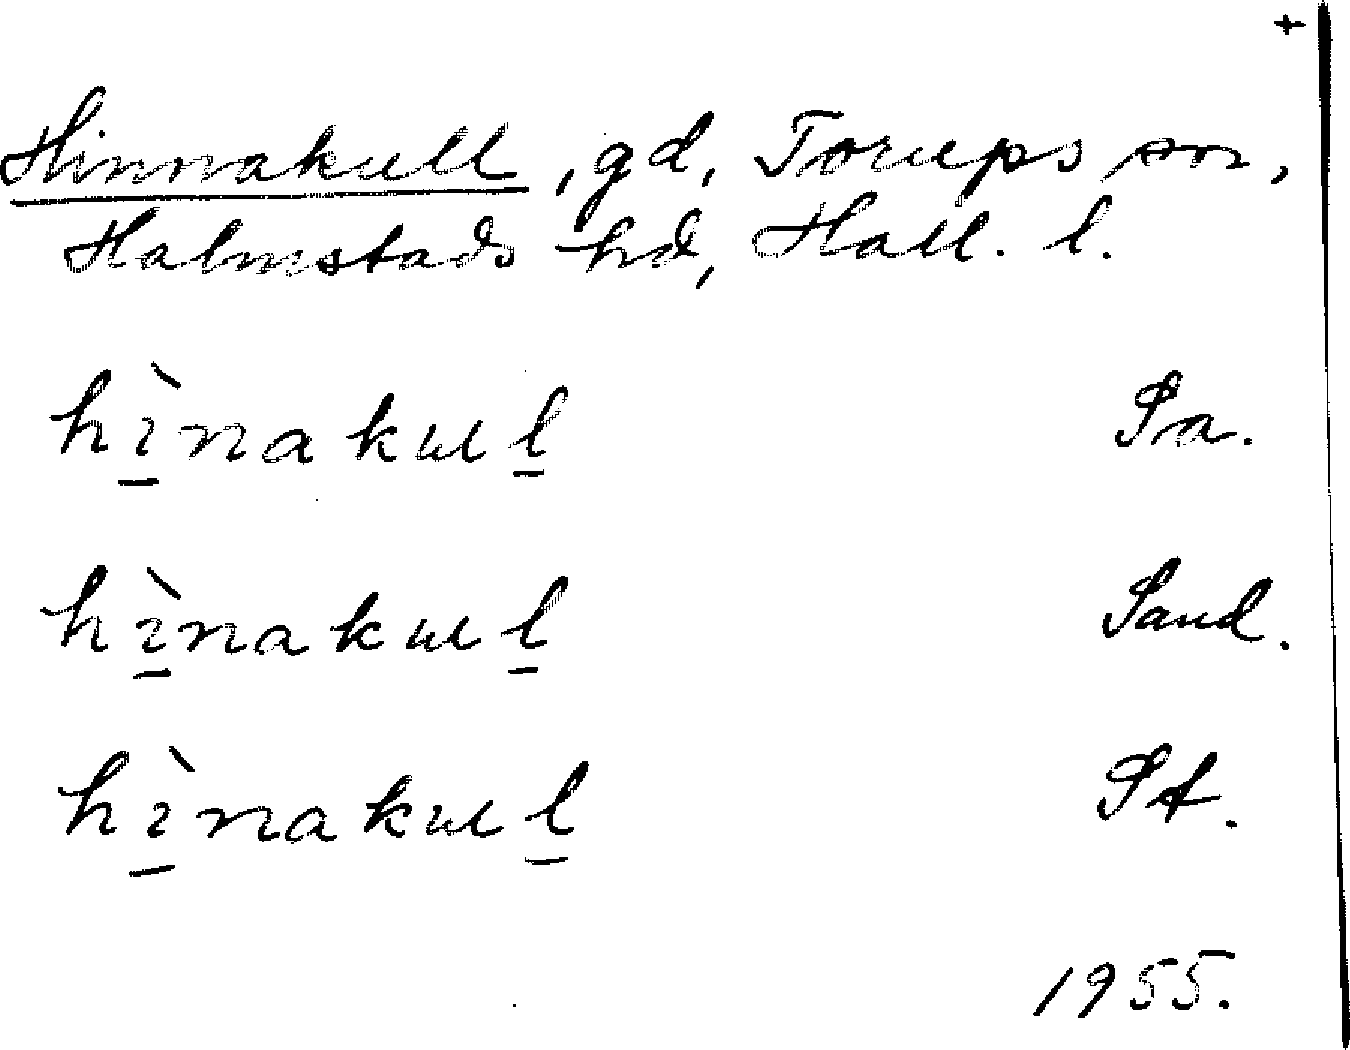 +
Hinnakull, gd, Torups sn,
Halmstads hd, Hall. l.
hı̱̀nakuḻ Sa.
hı̱̀nakuḻ Sand.
hı̱̀nakuḻ St.
1955.